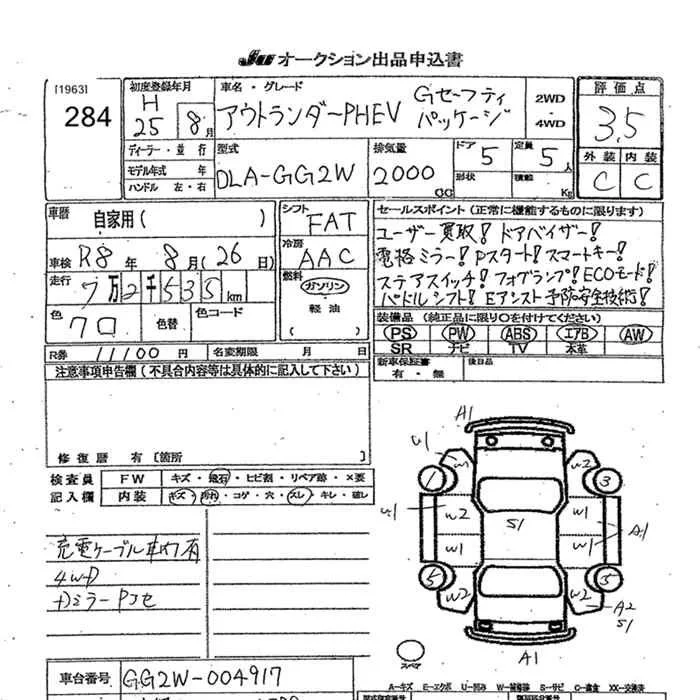 JU オークション出品申込書
[1963]
284
初度登録年月
H
25 8月
車名・グレード
アウトランダーPHEV Gセーフティ
パッケージ
2WD
・
4WD
評価点
3.5
外装 内装
C C
ディーラー・並行
モデル年式 年
ハンドル 左・右
型式
DLA-GG2W
排気量
2000
CC
ドア 5
形状
定員 5人
積載 Kg
車歴
自家用( )
車検 R8年 8月(26日)
走行 7万2千535km
色
クロ
色替
色コード
シフト
FAT
冷房
AAC
燃料
ガソリン
軽油
セールスポイント(正常に機能するものに限ります)
ユーザー買取! ドアバイザー!
電格ミラー! Pスタート! スマートキー!
ステアスイッチ! フォグランプ! ECOモード!
パドルシフト! Eアシスト 予防安全技術!
装備品(純正品に限り○を付けてください)
PS PW ABS エアB AW
SR ナビ TV 本革
新車保証書
有・無
後日品
R券 11100円
名変期限 月 日
注意事項申告欄(不具合内容等は具体的に記入して下さい)
修復歴 有 [箇所
検査員
記入欄
FW キズ・飛石・ヒビ割・リペア跡・×要
内装 キズ・汚れ・コゲ・穴・スレ・キレ・破レ
充電ケーブル車内有
4WD
車台番号 GG2W-004917
A1
u1
w
w2
1
3
u1
w2
w1
S1
A1
w1
w1
5
5
w2
w2
A2
S1
A1
スペア
A-キズ E-エクボ U-凹み W-補修跡 S-サビ C-腐食 XX-交換済